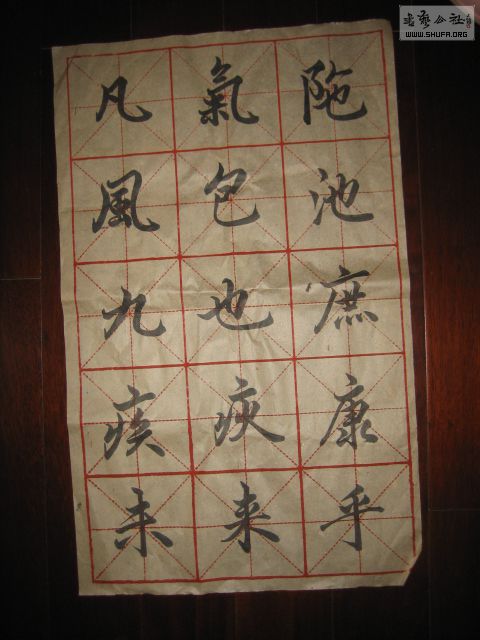 陁池庶康乎
氣包也疢来
凡風九疾未
書藝公社
WWW.SHUFA.ORG